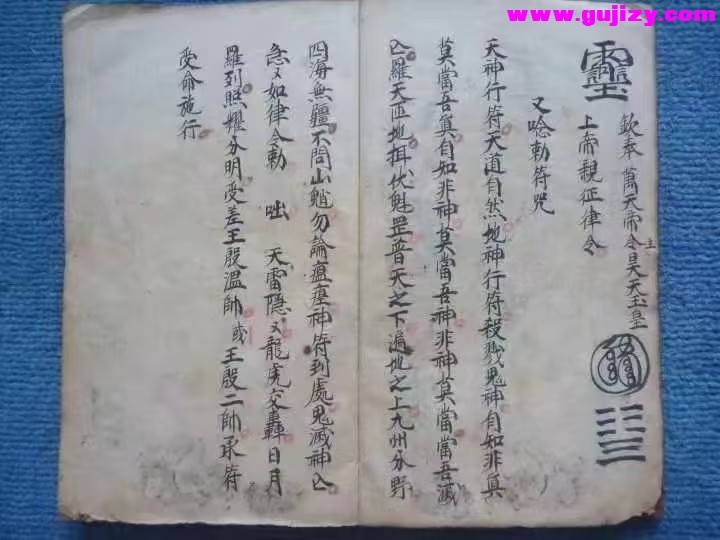 www.gujizy.com
靈
欽奉萬天帝令主昊天玉皇
上帝親征律令
又唸勅符咒
天神行符天道自然地神行符殺戮鬼神自如非真
莫當吾真自知非神莫當吾神非神莫當當吾滅
亾羅天匝地揖伏魁罡普天之下遍地之上九州分野
四海無疆不問山魈勿論瘟𤻤神符到處鬼滅神亾
急〻如律令勅 咄 天雷隱〻龍虎交轟日月
羅列照耀分明受差王殷溫帥或王殷二帥承符
受命施行